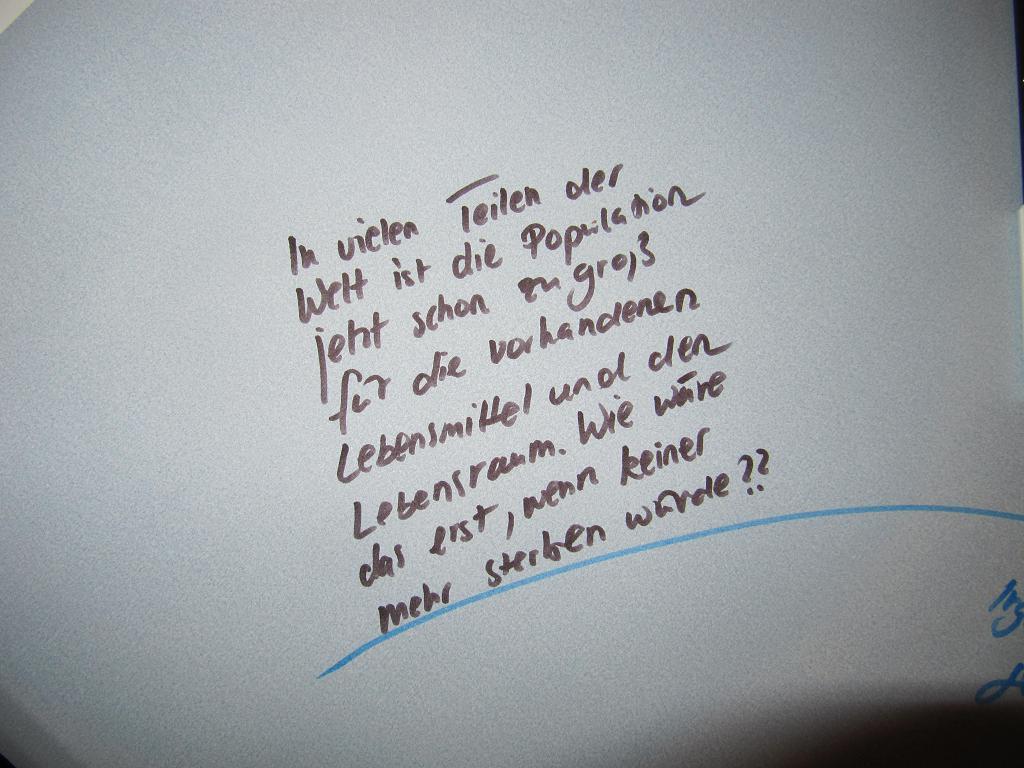 In vielen Teilen der
Welt ist die Population
jetzt schon zu groß
für die vorhandenen
Lebensmittel und den
Lebensraum. Wie wäre
das erst, wenn keiner
mehr sterben würde??